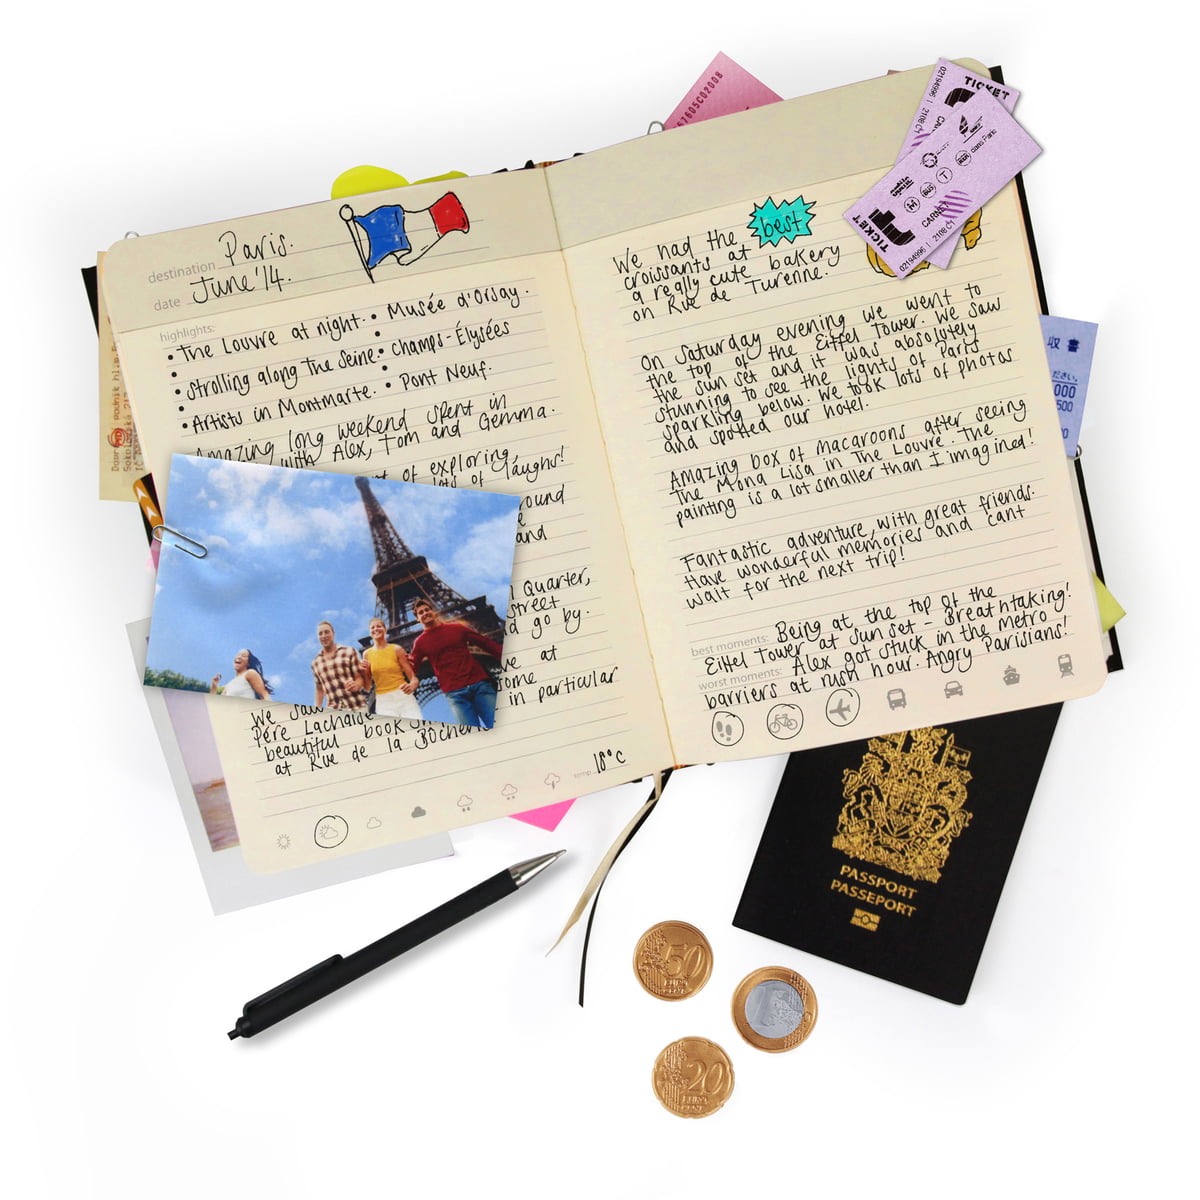 destination Paris.
date June '14.
highlights:
• The Louvre at night. • Musée d'Orsay.
• strolling along the Seine. • Champs-Élysées
• Artists in Montmarte. • Pont Neuf.
Amazing long weekend spent in
with Alex, Tom and Gemma.
of exploring,
lots of laughs!
round
and
Quarter,
street
go by.
at
some
in particular
We saw
Père Lachaise
beautiful book
at Rue de la Bûcherie
temp 18°C
We had the best
croissants at
a really cute bakery
on Rue de Turenne.
On Saturday evening we went to
the top of the Eiffel Tower. We saw
the sun set and it was absolutely
stunning to see the lights of Paris
sparkling below. We took lots of photos
and spotted our hotel.
Amazing box of macaroons after seeing
The Mona Lisa in The Louvre. The
painting is a lot smaller than I imagined!
Fantastic adventure, with great friends.
Have wonderful memories and cant
wait for the next trip!
best moments: Being at the top of the
Eiffel Tower at sunset - Breathtaking!
worst moments: Alex got stuck in the metro
barriers at rush hour. Angry Parisians!
67605C02008
TICKET
02194996 | 2108
TICKET
CARNET
02194996 | 2108
BUS
T
M
RER
収書
000
500
PASSPORT
PASSEPORT
50
EURO
CENT
1
20
EURO
CENT